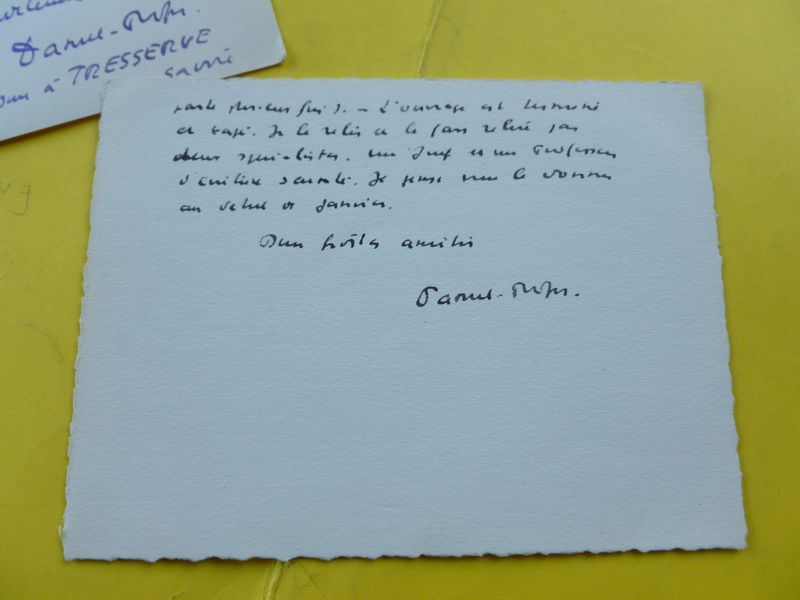 Daniel-Rops.
à TRESSERVE
Savoie
parlé plusieurs fois). – L'ouvrage est terminé
et tapé. Je le relis et le fais relire par
deux spécialistes. un Juif et un Professeur
d'Écriture Sainte. Je pense vous le donner
au début de Janvier.
Bien fidèles amitiés
Daniel-Rops.